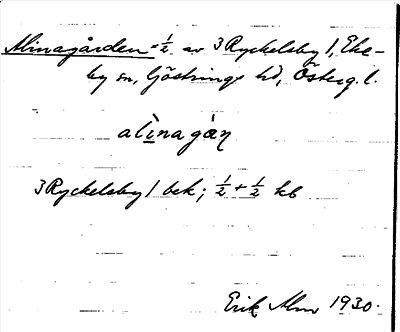 Alinagården - ½ av 3 Ryckelsby 1, Eke-
by sn, Göstrings hd, Österg. l.
alìnagàɳ
3 Ryckelsby 1 bek; ½ + ½ kb
Erik Alm 1930.